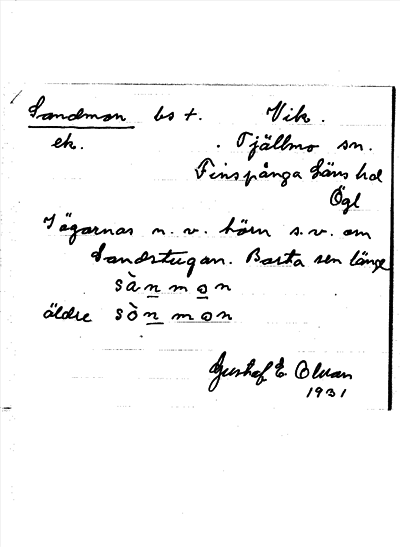 Sandmon bs t. Vik.
ek. Tjällmo sn.
Finspånga läns hd
Ögl
I ägornas n. v. hörn s. v. om
Sandstugan. Borta sen länge
sànmon
äldre sònmon
Gustaf E. Olvan
1931